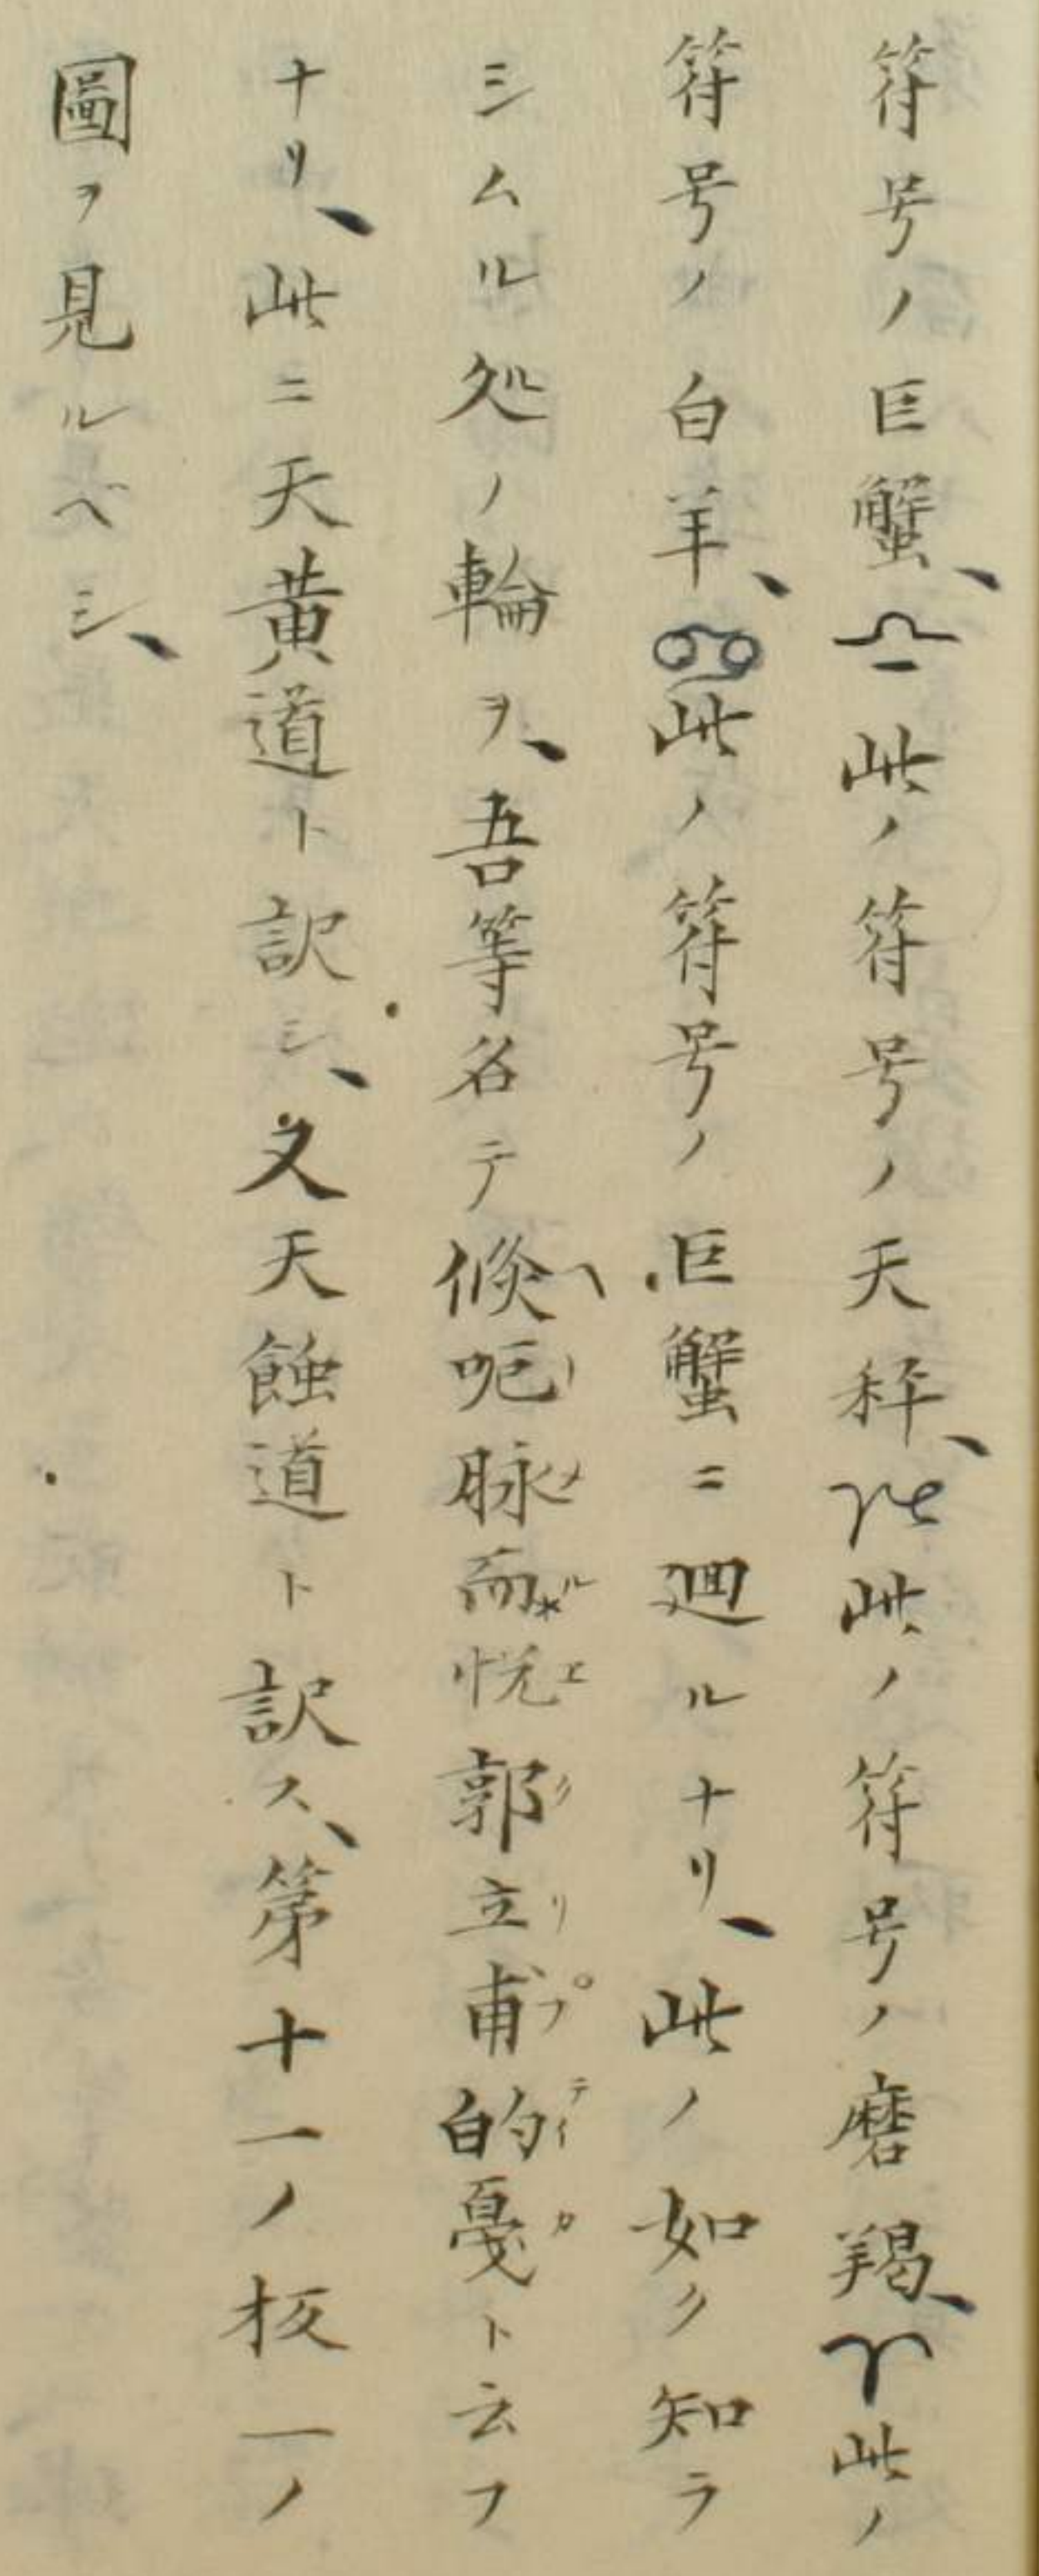 符号ノ巨蟹、♎此ノ符号ノ天秤、♑此ノ符号ノ磨羯、♈此ノ
符号ノ白羊、♋此ノ符号ノ巨蟹ニ廻ルナリ、此ノ如ク知ラ
シムル処ルノ輪ヲ、吾等名テ倐呃脉而悦郭立甫的戞ヘトメルエクリプテイカト云フ
ナリ、此ニ天黄道ト訳シ、又天蝕道ト訳ス、第十一ノ板一ノ
圖ヲ見ルベシ、